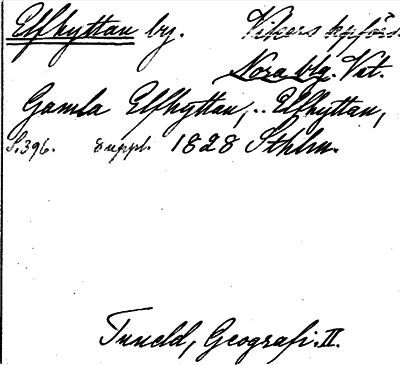 Elfhyttan by. Vikers kpförs.
Nora bg. Vst.
Gamla Elfhyttan, .. Elfhyttan,
S. 396. Suppl. 1828 Sthlm.
Tuneld, Geografi. II.